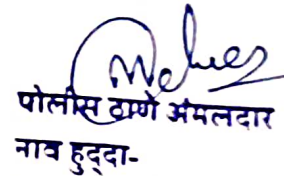 पोलीस ठाणे अंमलदार
नाव हुद्दा-